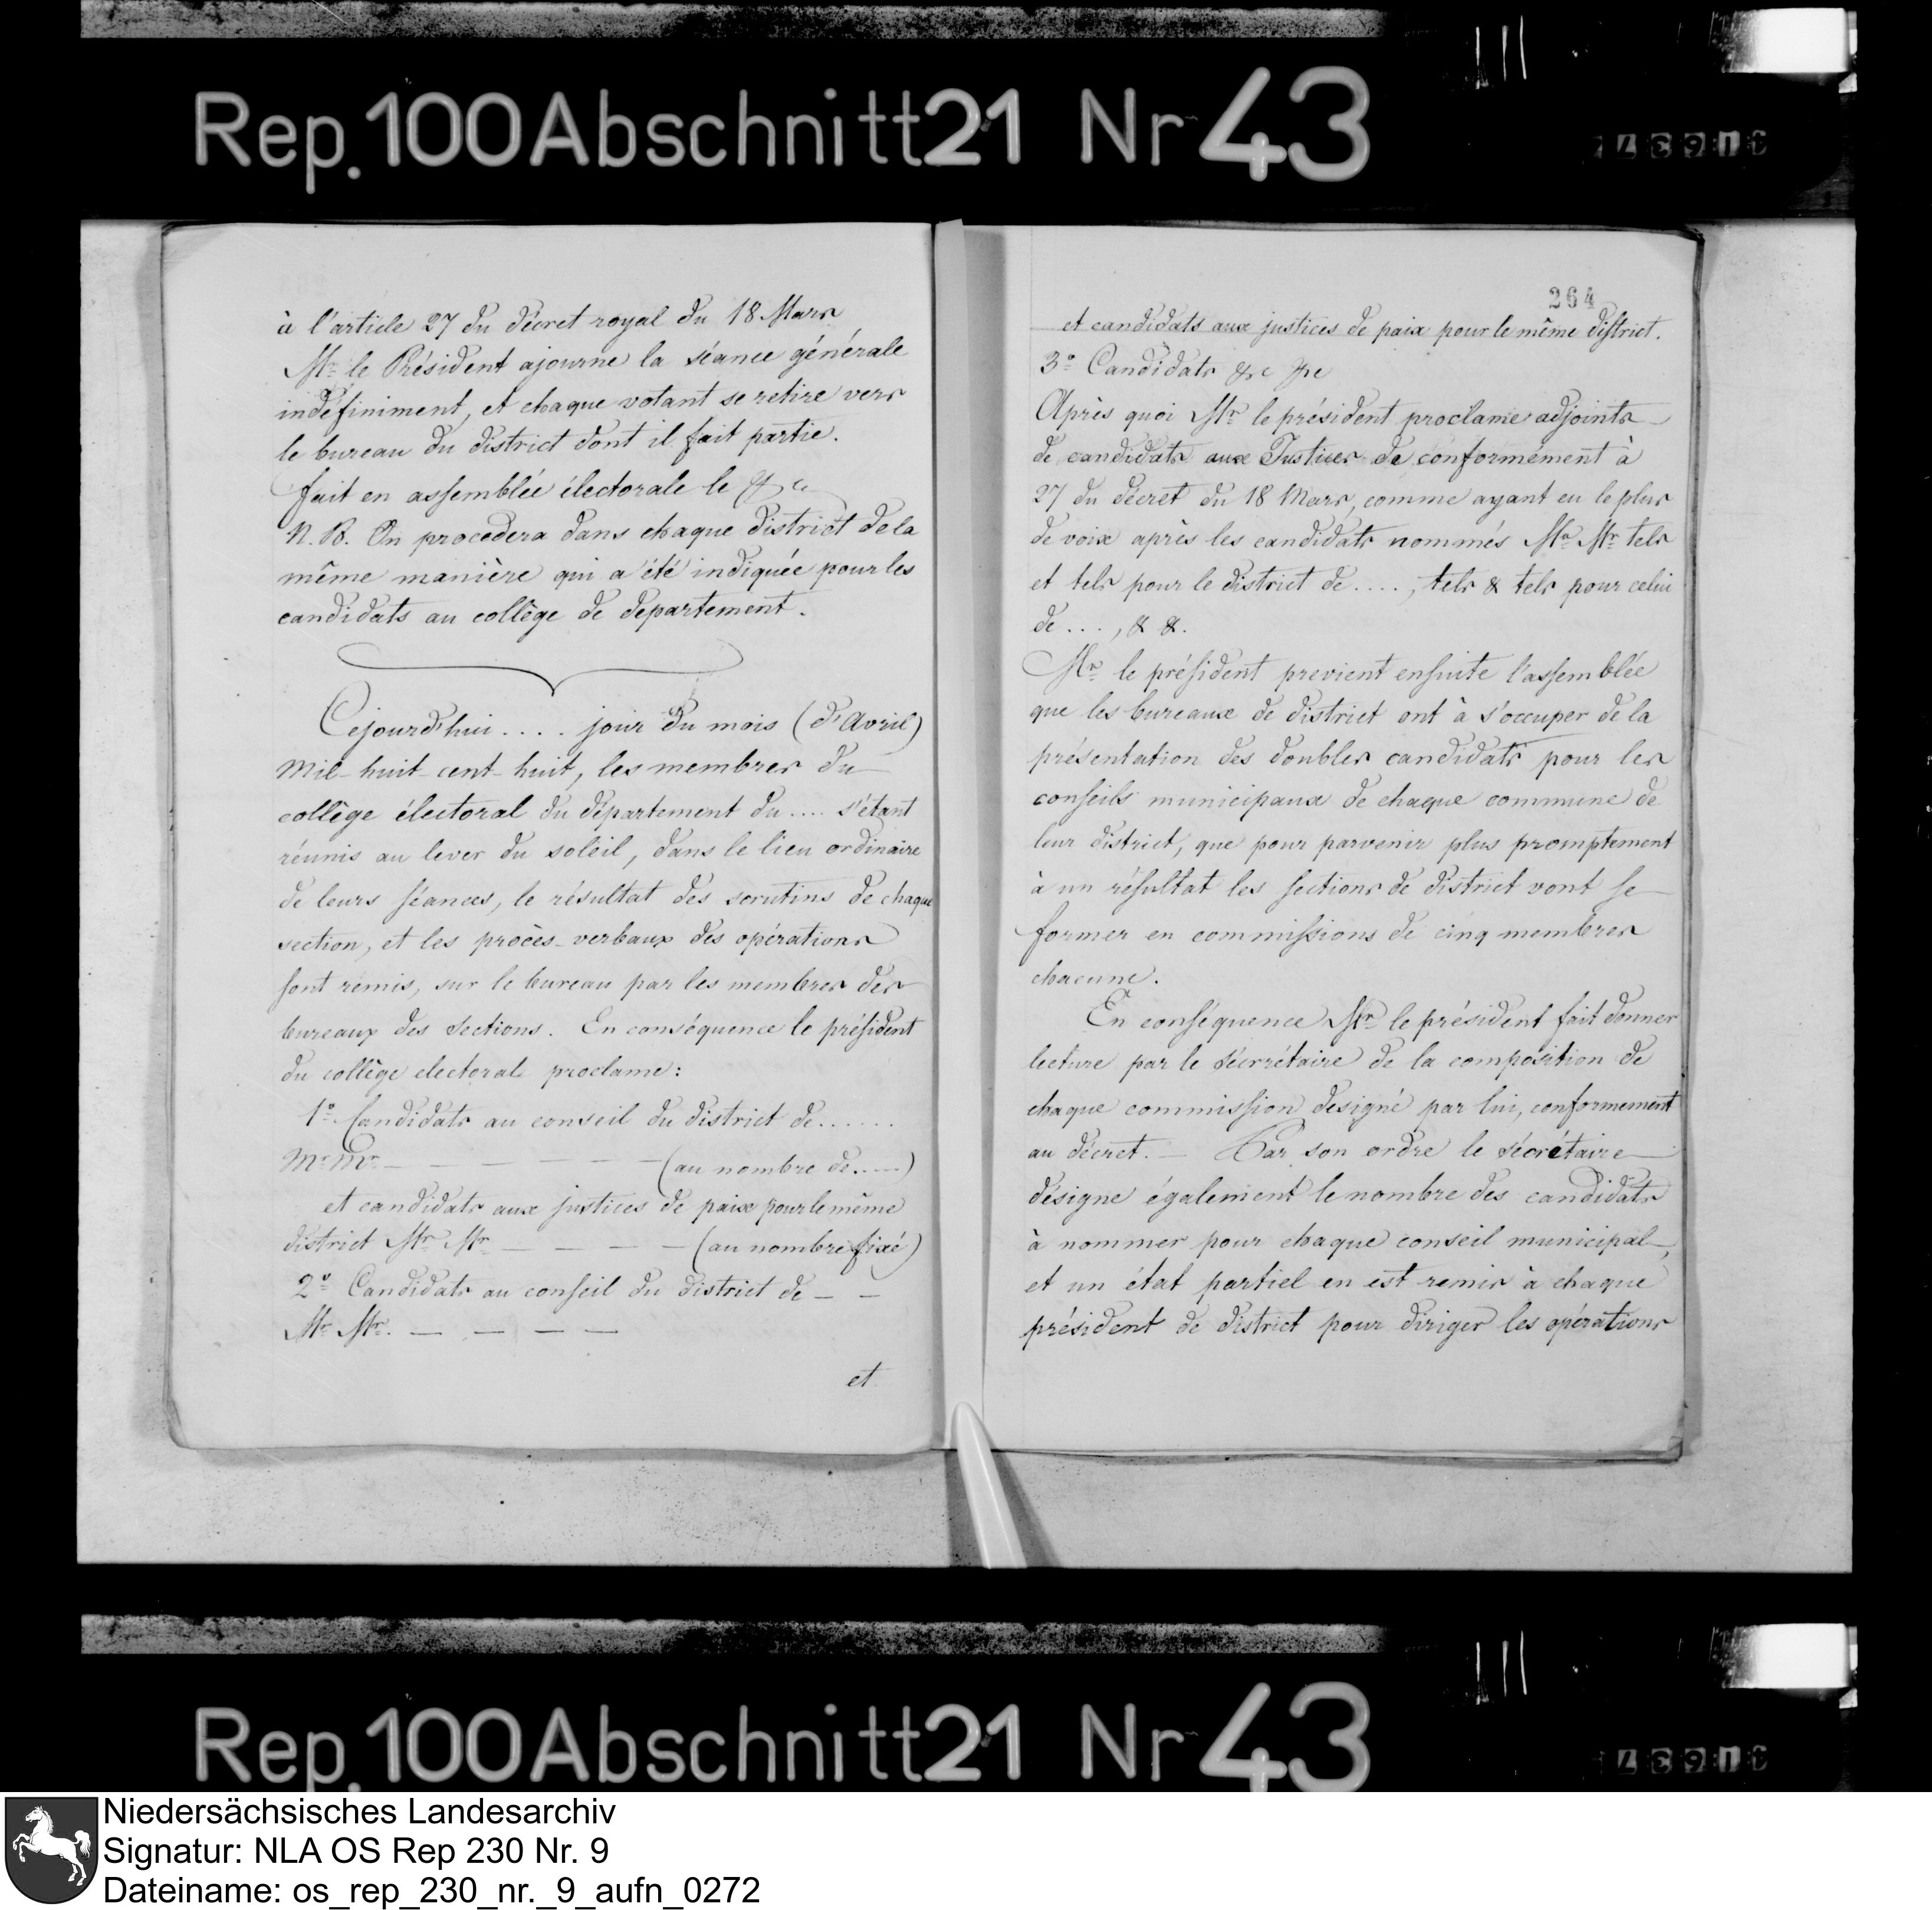 Rep. 100 Abschnitt 21 Nr 43
à l'article 27 du décret royal du 18 Mars
Mr le Président ajourne la séance générale
indéfiniment, et chaque votant se retire vers
le bureau du district dont il fait partie.
fait en assemblée électorale le &c
N. B. On procedera dans chaque district de la
même manière qui a été indiquée pour les
candidats au collège de departement.
Cejourd'hui .... jour du mois (d'Avril)
Mil-huit-cent-huit, les membres du
collège électoral du département du .... s'étant
réunis au lever du soleil, dans le lieu ordinaire
de leurs séances, le résultat des scrutins de chaque
section, et les procès-verbaux des opérations
sont remis, sur le bureau par les membres des
bureaux des sections. En conséquence le président
du collège electoral proclame:
1º Candidats au conseil du district de......
Mr Mr — — — — — (au nombre de.....)
et candidats aux justices de paix pour le même
district Mr Mr — — — — (au nombre fixé)
2º Candidats au conseil du district de — —
Mr Mr. — — — —
et
264
et candidats aux justices de paix pour le même district.
3º Candidats &c &c
Après quoi Mr le président proclame adjoints
de candidats aux Justices de conformément à
27 du décret du 18 Mars, comme ayant eu le plus
de voix après les candidats nommés Mr Mr tels
et tels pour le district de ...., tels & tels pour celui
de ..., & &.
Mr le président previent ensuite l'assemblée
que les bureaux de district ont à s'occuper de la
présentation des doubles candidats pour les
conseils municipaux de chaque commune de
leur district, que pour parvenir plus promptement
à un résultat les sections de district vont se
former en commissions de cinq membres
chacune.
En conséquence Mr le président fait donner
lecture par le sécrétaire de la composition de
chaque commission designé par lui, conformement
au décret. — Par son ordre le sécrétaire
désigne également le nombre des candidats
à nommer pour chaque conseil municipal,
et un état partiel en est remis à chaque
président de district pour diriger les opérations
Rep. 100 Abschnitt 21 Nr 43
Niedersächsisches Landesarchiv
Signatur: NLA OS Rep 230 Nr. 9
Dateiname: os_rep_230_nr._9_aufn_0272